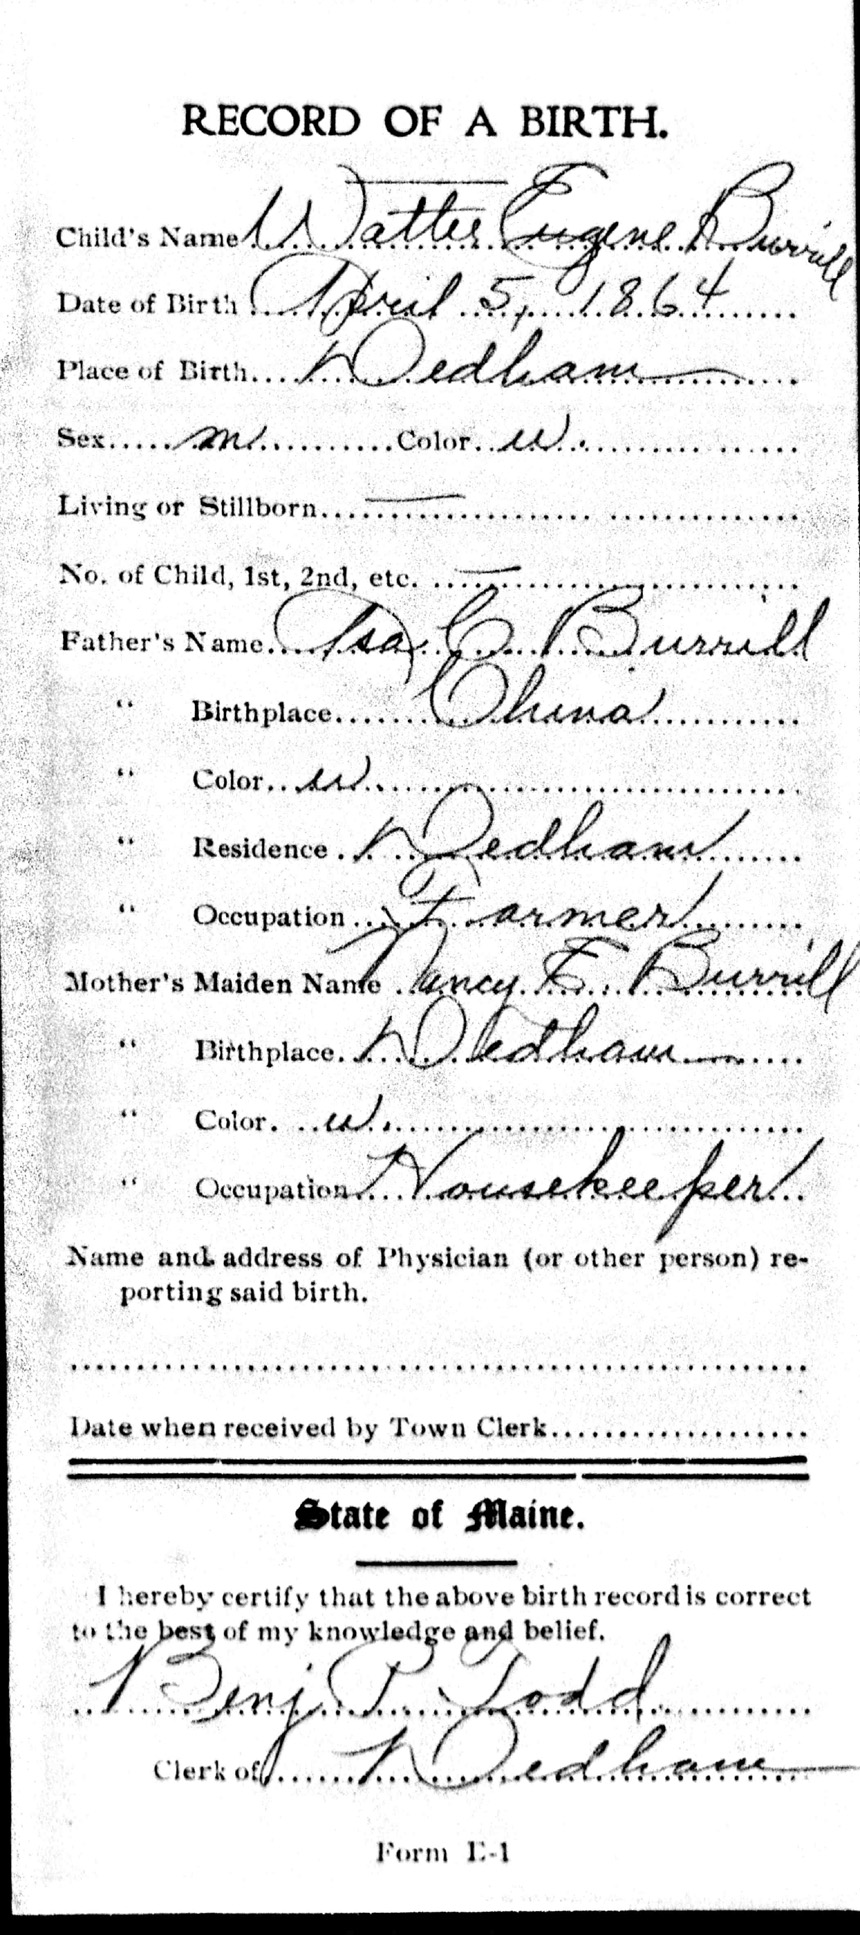 RECORD OF A BIRTH.
Child's Name Walter Eugene Burrill
Date of Birth April 5, 1864
Place of Birth Dedham
Sex m Color w.
Living or Stillborn —
No. of Child, 1st, 2nd, etc. —
Father's Name Asa C Burrill
" Birthplace China
" Color w.
" Residence Dedham
" Occupation Farmer
Mother's Maiden Name Nancy E. Burrill
" Birthplace Dedham
" Color w.
" Occupation Housekeeper
Name and address of Physician (or other person) re-
porting said birth.
Date when received by Town Clerk
State of Maine.
I hereby certify that the above birth record is correct
to the best of my knowledge and belief.
Benj P. Todd
Clerk of Dedham
Form E-1